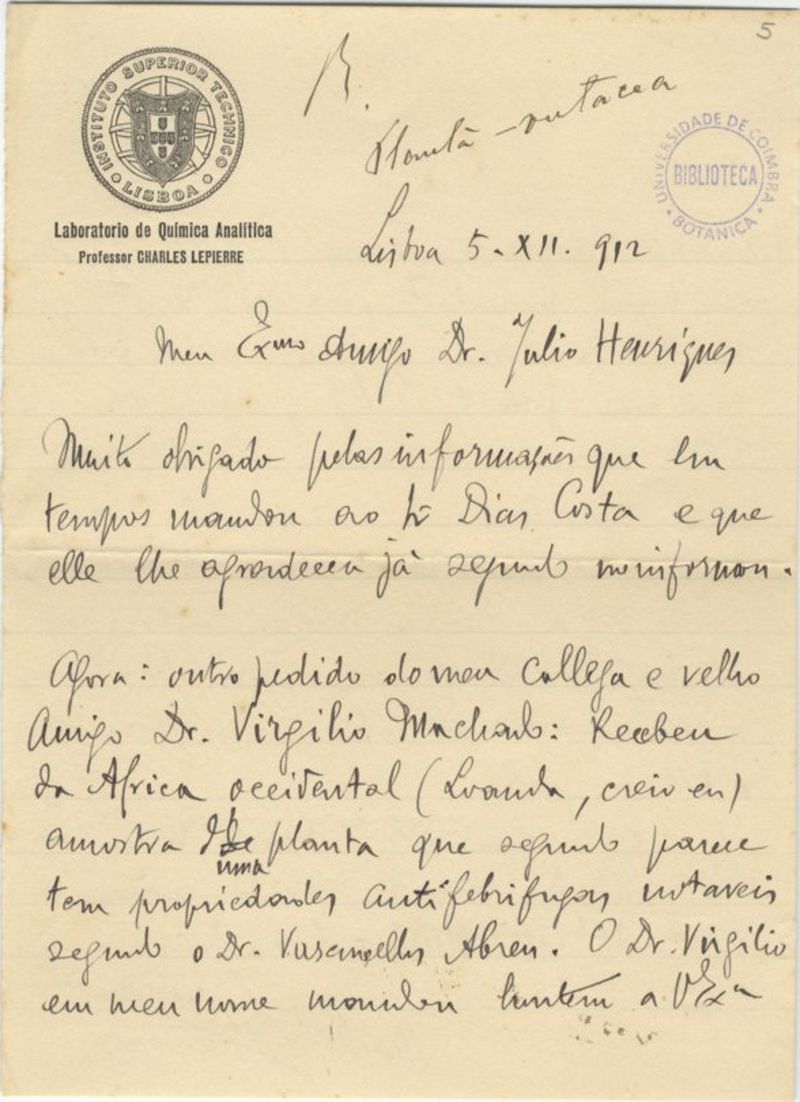 5
INSTITUTO SUPERIOR TECHNICO
LISBOA
Laboratorio de Química Analítica
Professor CHARLES LEPIERRE
R.
Planta - rutacea
UNIVERSIDADE DE COIMBRA
BIBLIOTECA
BOTANICA
Lisboa 5-XII. 912
Meu Exmo Amigo Dr. Julio Henriques
Muito obrigado pelas informações que em
tempos mandou ao Dias Costa e que
elle lhe agradeceu já segundo me informou.
Agora: outro pedido do meu collega e velho
Amigo Dr. Virgilio Machado: Recebeu
da Africa occidental (Loanda, creio eu)
amostra de uma planta que segundo parece
tem propriedades antifebrifugas notaveis
segundo o Dr. Vasconcellos Abreu. O Dr. Virgilio
em meu nome mandou hontem a VExa